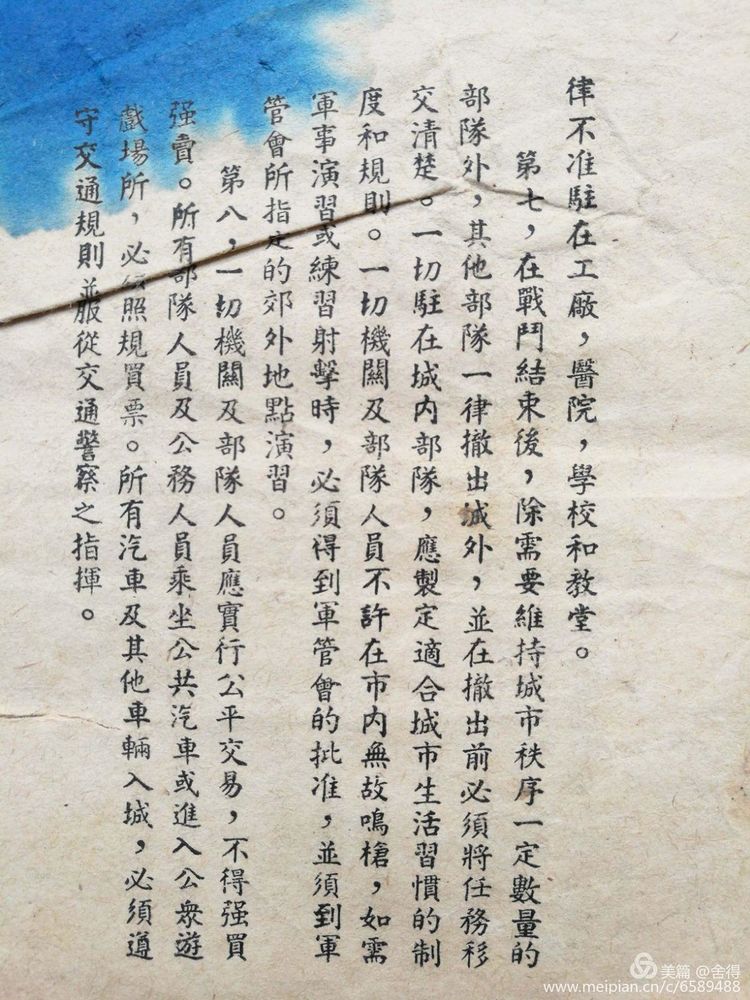 律不准駐在工廠，醫院，學校和教堂。
第七，在戰鬥結束後，除需要維持城市秩序一定數量的
部隊外，其他部隊一律撤出城外，並在撤出前必須將任務移
交清楚。一切駐在城內部隊，應製定適合城市生活習慣的制
度和規則。一切機關及部隊人員不許在市內無故鳴槍，如需
軍事演習或練習射擊時，必須得到軍管會的批准，並須到軍
管會所指定的郊外地點演習。
第八，一切機關及部隊人員應實行公平交易，不得强買
强賣。所有部隊人員及公務人員乘坐公共汽車或進入公眾遊
戲場所，必須照規買票。所有汽車及其他車輛入城，必須遵
守交通規則並服從交通警察之指揮。
美篇 @舍得
www.meipian.cn/c/6589488